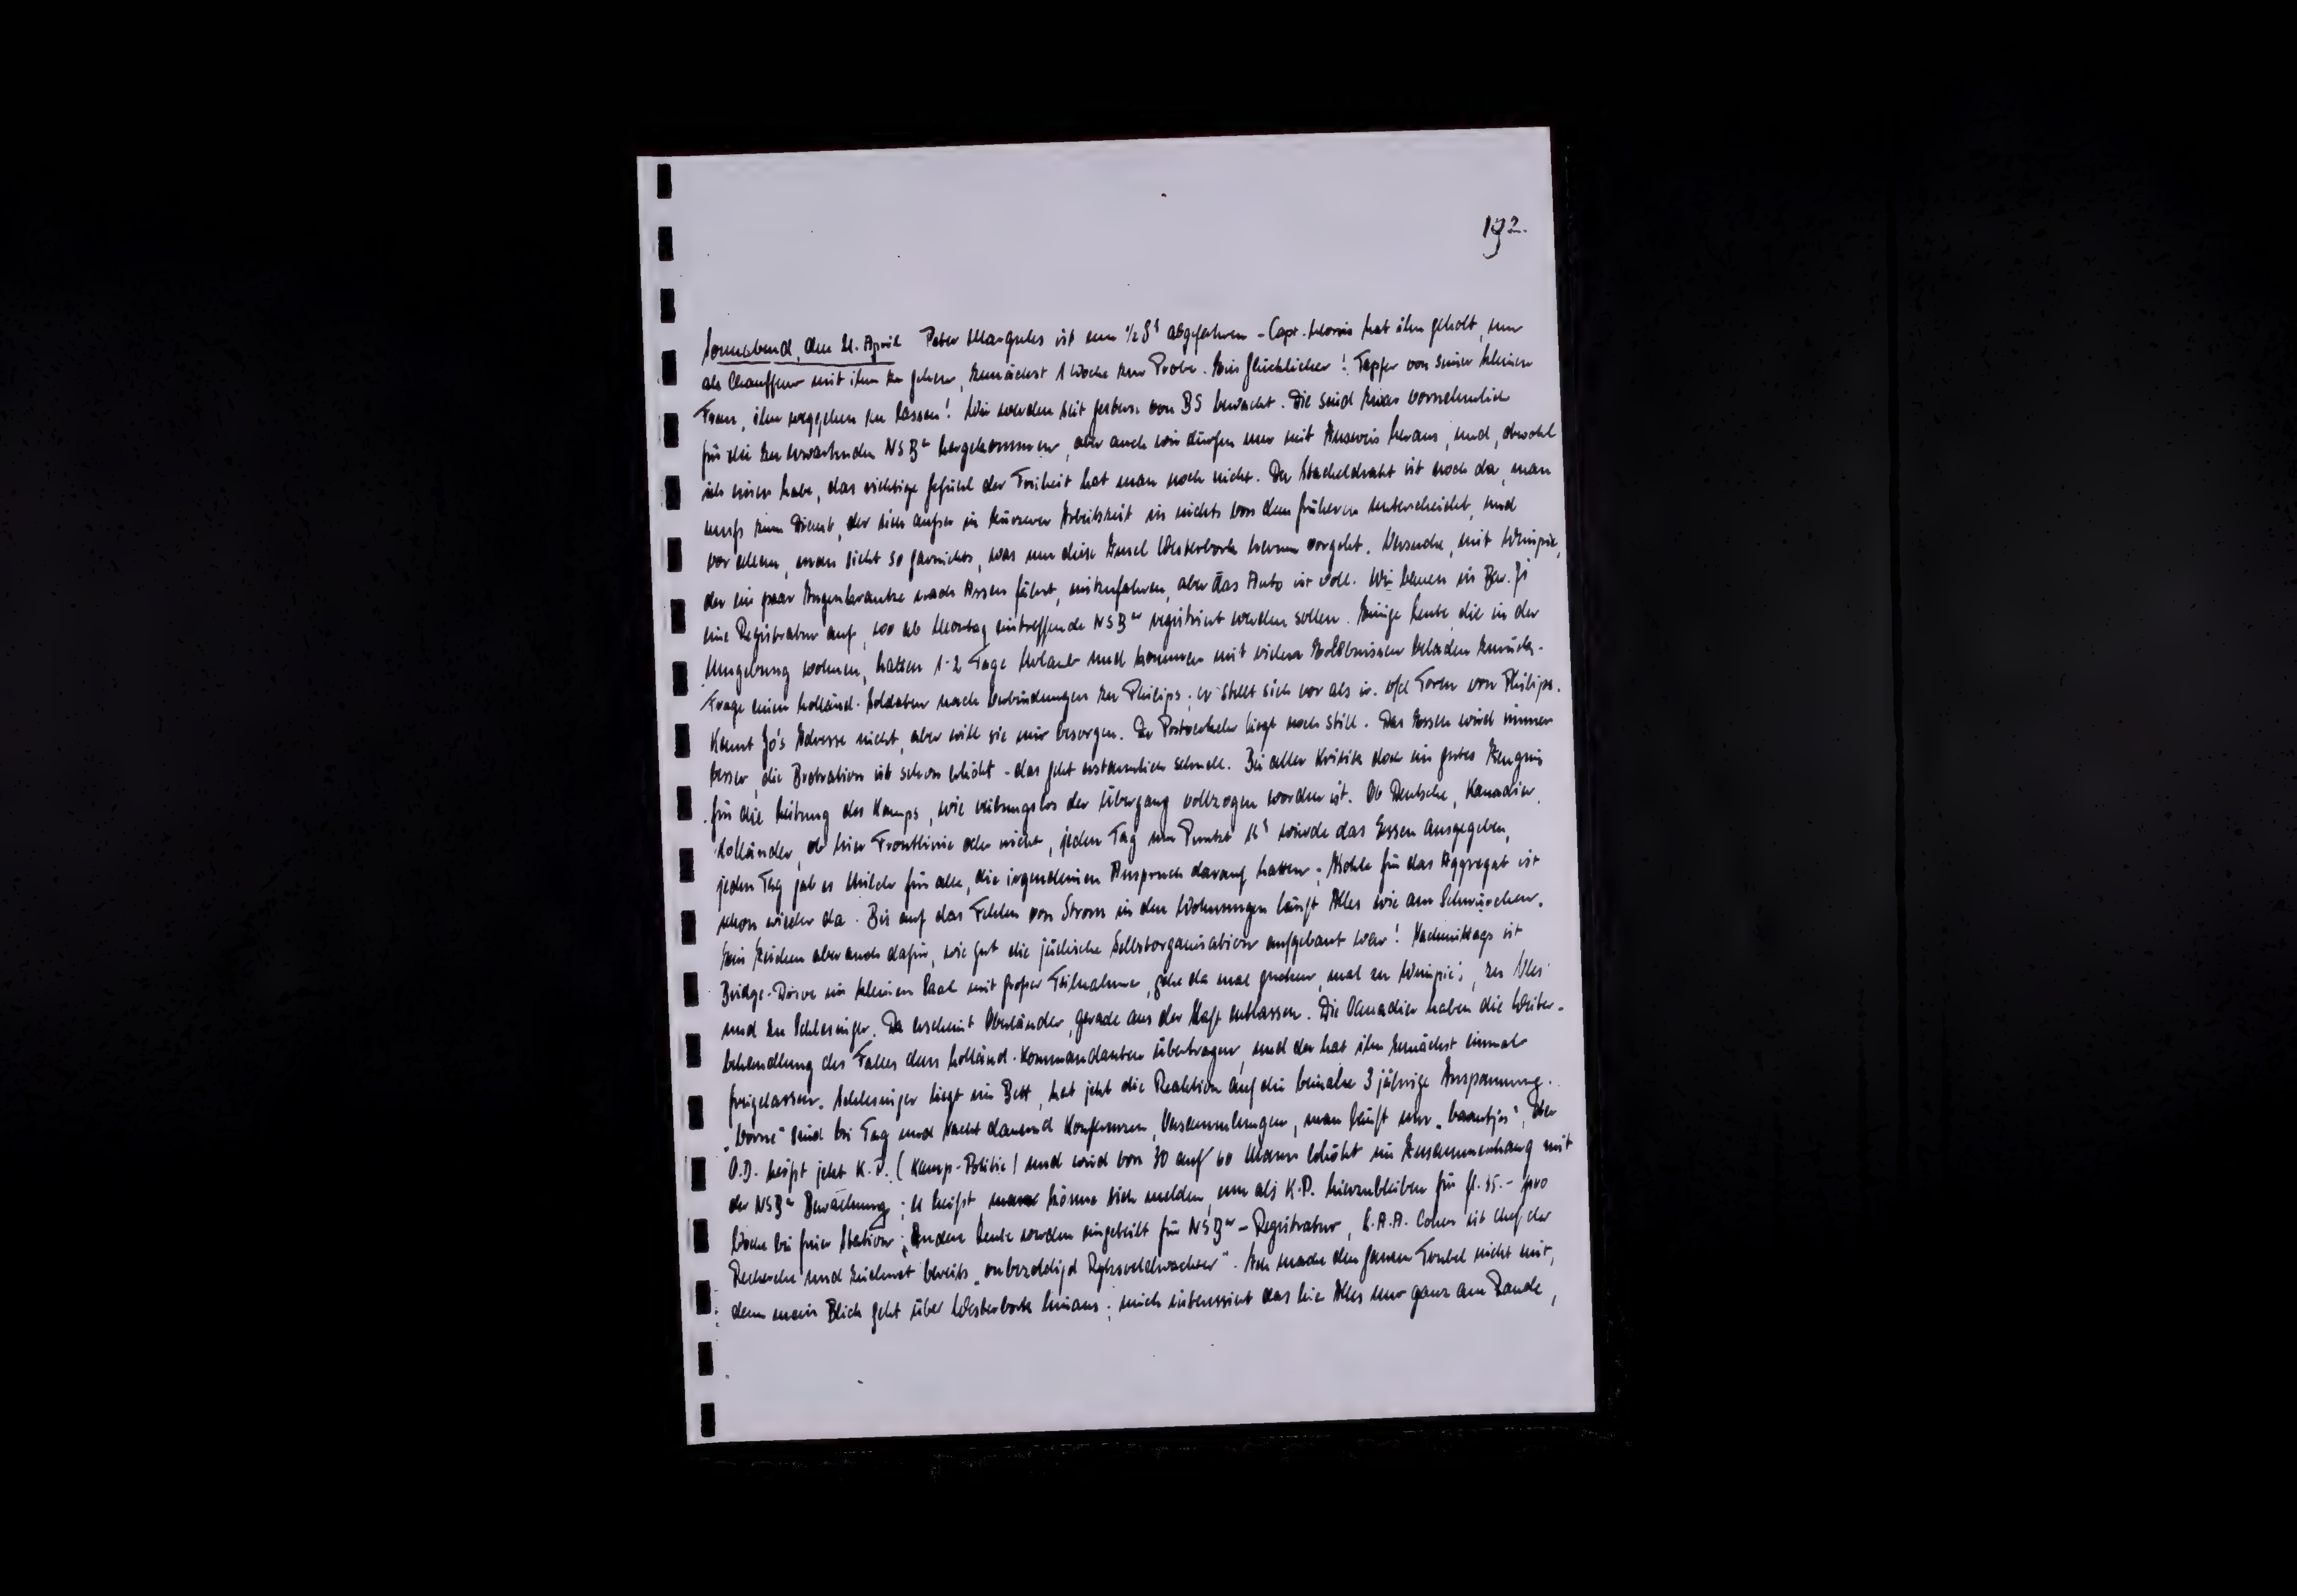 192.
Sonnabend, den 21. April Peter Margules ist um ½ 8ʰ abgefahren - Capt. Morris hat ihn geholt, um
als Chauffeur mit ihm zu gehen, zunächst 1 Woche zur Probe. Ein Glücklicher! Tapfer von seiner kleinen
Frau, ihn weggehen zu lassen! Wir werden seit gestern von BS bewacht. Die sind zwar vornehmlich
für die zu erwartenden NSBer hergekommen, aber auch wir dürfen nur mit Ausweis heraus, und, obwohl
ich einen habe, das richtige Gefühl der Freiheit hat man noch nicht. Der Stacheldraht ist noch da, man
muss zum Dienst, der sich ausser in kürzerer Arbeitszeit in nichts von dem früheren unterscheidet, und
vor allem, man sieht so garnichts, was um diese Insel Westerbork herum vorgeht. Versuche, mit Wimpie,
der ein paar Augenkranke nach Assen fährt, mitzufahren, aber das Auto ist voll. Wir bauen in Bar. 71
eine Registratur auf, wo ab Montag eintreffende NSBer registriert werden sollen. Einige Leute, die in der
Umgebung wohnen, hatten 1-2 Tage Urlaub und kommen mit vielen Erlebnissen beladen zurück.
Frage einen holländ. Soldaten nach Verbindungen zu Philips; er stellt sich vor als ir. van Toren von Philips.
Kennt Jo's Adresse nicht, aber will sie mir besorgen. Der Postverkehr liegt noch still. Das Essen wird immer
besser, die Brotration ist schon erhöht - das geht erstaunlich schnell. Bei aller Kritik doch ein gutes Zeugnis
für die Leitung des Kamps, wie reibungslos der Übergang vollzogen worden ist. Ob Deutsche, Kanadier,
Holländer, ob hier Frontlinie oder nicht, jeden Tag um Punkt 12ʰ wurde das Essen ausgegeben,
jeden Tag gab es Milch für alle, die irgendeinen Anspruch darauf hatten; Kohle für das Aggregat ist
schon wieder da. Bis auf das Fehlen von Strom in den Wohnungen läuft Alles wie am Schnürchen.
Ein Zeichen aber auch dafür, wie gut die jüdische Selbstorganisation aufgebaut war! Nachmittags ist
Bridge-Drive im kleinen Saal mit grosser Teilnahme, gehe da mal gucken, mal zu Wimpie, zu Ules
und zu Schlesinger. Da erscheint Oberländer, gerade aus der Haft entlassen. Die Canadier haben die Weiter-
behandlung des Falles dem holländ. Kommandanten übertragen, und der hat ihn zunächst einmal
freigelassen. Schlesinger liegt im Bett, hat jetzt die Reaktion auf die beinahe 3 jährige Anspannung.
„Vorne" sind bei Tag und Nacht dauernd Konferenzen, Versammlungen, man läuft um „baantjes", der
O.D. heisst jetzt K.P. (Kamp-Politie) und wird von 30 auf 60 Mann erhöht im Zusammenhang mit
der NSBer Bewachung; es heisst man könne sich melden, um als K.P. hierzubleiben für fl. 35.- pro
Woche bei freier Station; andere Leute werden eingeteilt für NSBer-Registratur, E.A.A. Cohen ist Chef der
Recherche und zeichnet bereits „onbezoldigd Rijksveldwachter". Ich mache den ganzen Trubel nicht mit,
denn mein Blick geht über Westerbork hinaus; mich interessiert das hier Alles nur ganz am Rande,